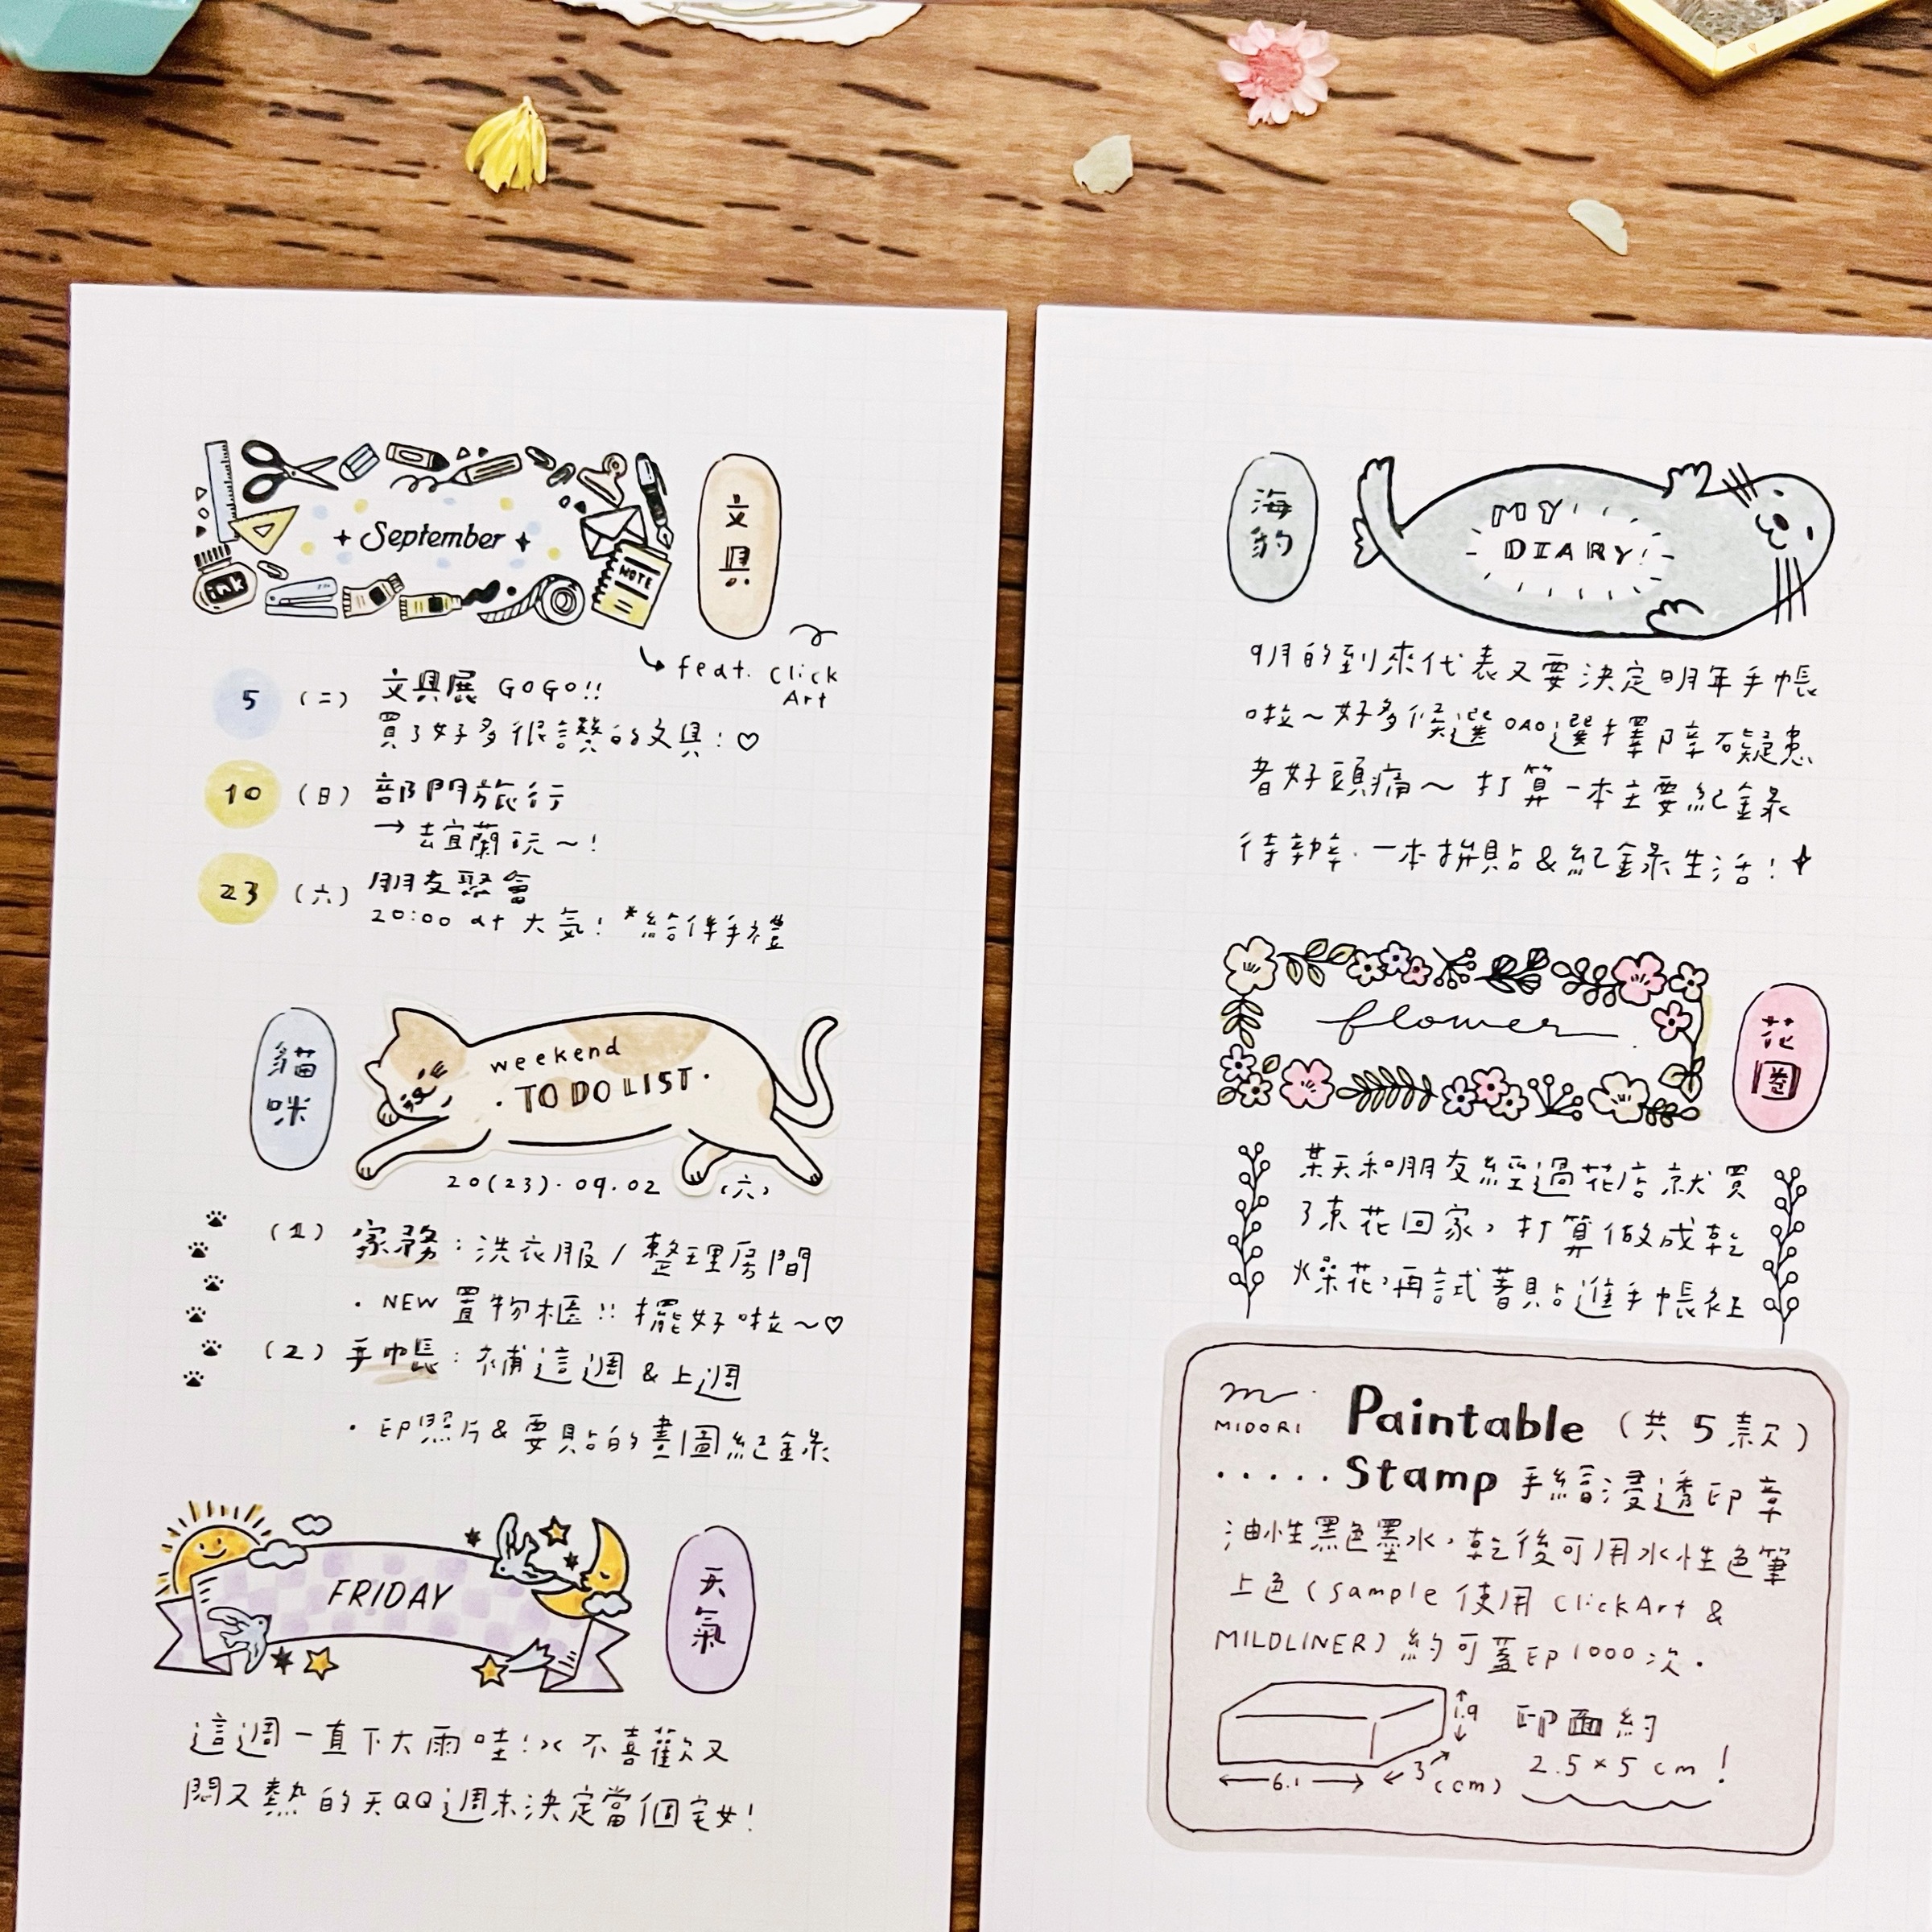 September
ink
NOTE
文具
feat. Click
Art
5 (二) 文具展 GOGO!!
買了好多很讚的文具!♡
10 (日) 部門旅行
→去宜蘭玩~!
23 (六) 朋友聚會
20:00 at 大氣! *給伴手禮
貓咪
weekend
・TO DO LIST・
20(23).09.02 (六)
(1) 家務:洗衣服/整理房間
・NEW 置物櫃!!擺好啦~♡
(2) 手帳:補這週&上週
・印照片&要貼的畫圖紀錄
FRIDAY
天氣
這週一直下大雨哇!>< 不喜歡又
悶又熱的天QQ週末決定當個宅女!
海豹
MY
DIARY!
9月的到來代表又要決定明年手帳
啦~好多候選OAO選擇障礙患
者好頭痛~打算一本主要紀錄
待辦.一本拼貼&紀錄生活!
flower
花圈
某天和朋友經過花店就買
了束花回家,打算做成乾
燥花,再試著貼進手帳裡
MIDORI
Paintable (共5款)
・・・・・Stamp 手繪浸透印章
油性黑色墨水,乾後可用水性色筆
上色(sample 使用 ClickArt &
MILDLINER)約可蓋印1000次.
1.9
6.1
3 (cm)
印面約
2.5×5cm!